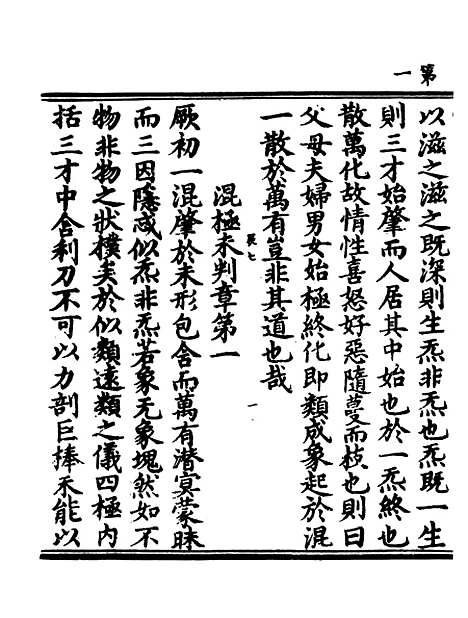 第一
以滋之滋之既深則生炁非炁也炁既一生
則三才始肇而人居其中始也於一炁終也
散萬化故情性喜怒好惡隨蔓而枝也則曰
父母夫婦男女始極終化即類咸象起於混
一散於萬有豈非其道也哉
混極未判章第一
厥初一混肇於未形包含而萬有潛寞蒙昧
而三因隱惑似炁非炁若象无象塊然如不
物非物之狀樸矣於似類遠類之儀四極內
括三才中含利刀不可以力剖巨捧禾能以